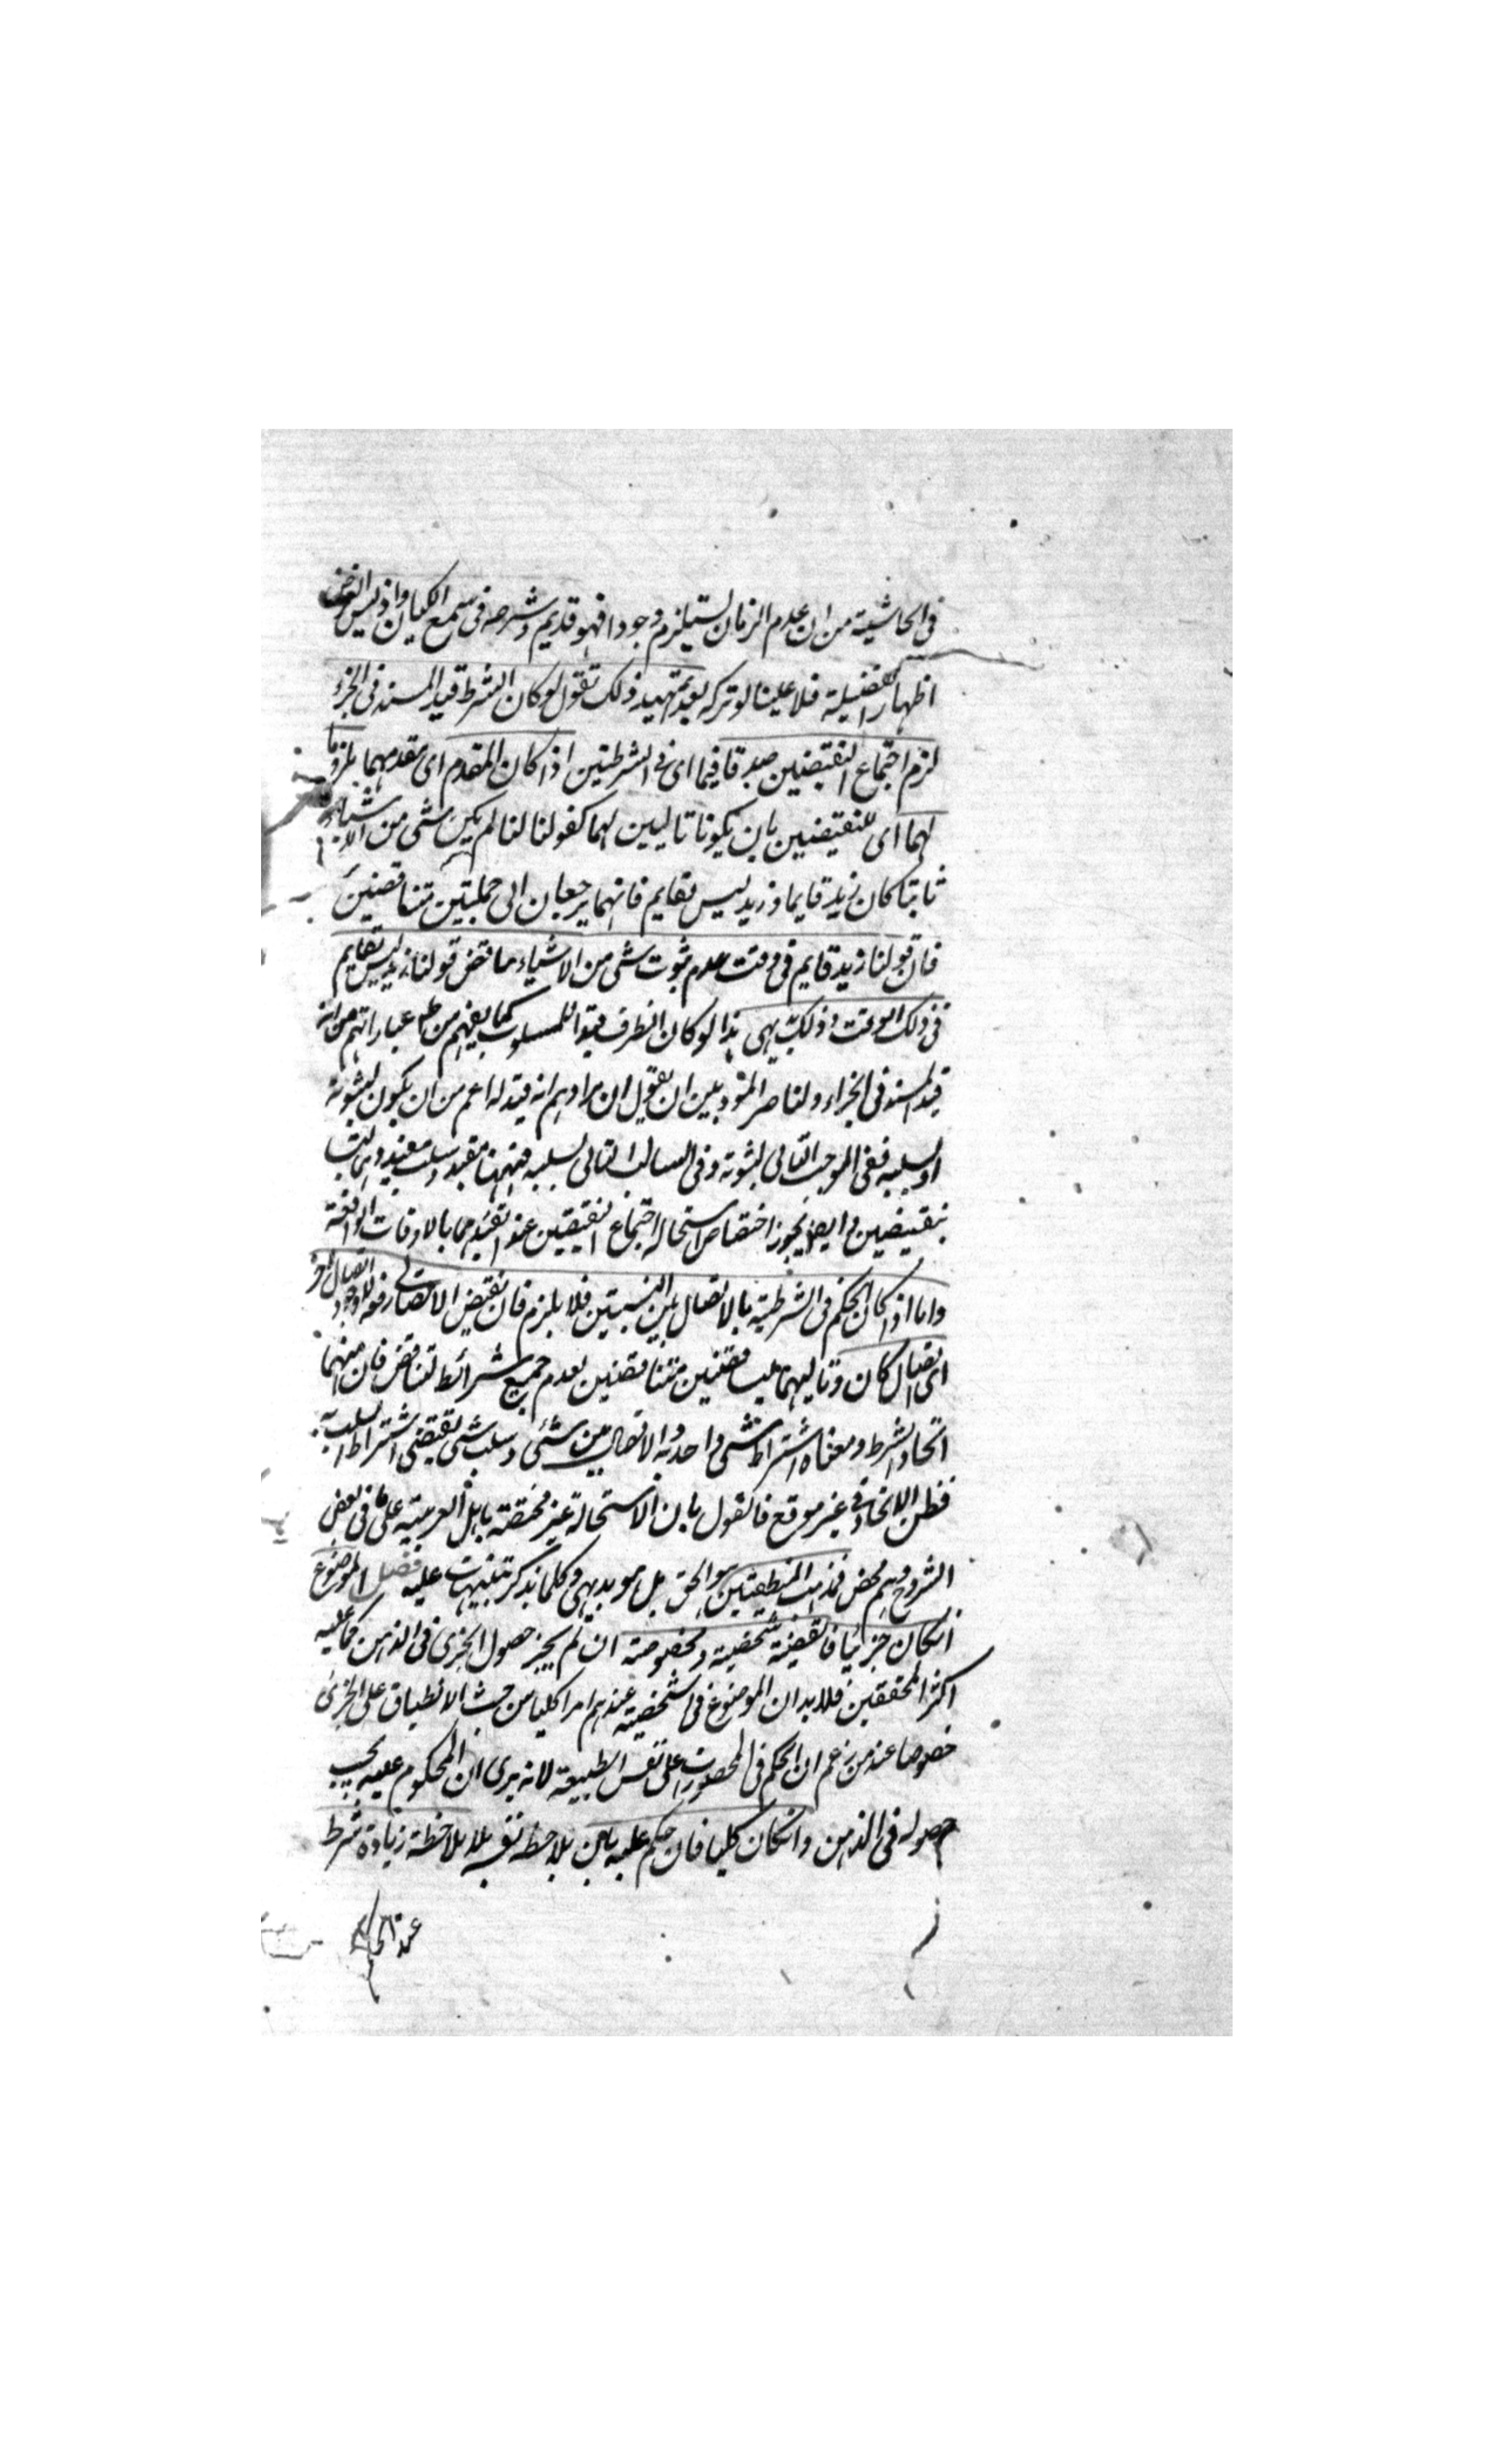 فی الحاشیة من ان عدم الزمان لستیلزم وجودا فهو قدیم وشرحه فی سمع الکیان واذ لیس الغرض
اظهار الفضیلة فلا علینا لو ترکه بعد تمهید ذلک نقول لو کان الشرط قید المسند فی الجزاء
لزم اجتماع النقیضین صدقا فیما ای فی الشرطتین اذا کان المقدم ای مقدمهما ملزوما
لهما ای للنقیضین بان یکونا تالیین لهما کقولنا لنا لم یکن شی من الاشیاء
ثابتا کان زید قایما وزید لیس بقایم فانهما یرجعان الی حملیتین متناقضتین
فان قولنا زید قایم فی وقت عدم ثبوت شی من الاشیاء مناقض قولنا زید لیس بقایم
فی ذلک الوقت وذلک بدیهی هذا لو کان الظرف قیدا للمسلوب کما یفهم من ظ عباراتهم من انه
قید المسند فی الجزاء ولناصر المنودبین ان یقول ان مرادهم انه قید له اعم من ان یکون لثبوته
او لسلبه ففی الموجب التالی لثبوته وفی السالب التالی لسلبه فههنا مقید وسلب مقید ولیسا
بنقیضین وایضا یجوز اختصاص استحالة اجتماع النقیضین عند تقییدهما بالاوقات الواقعة
واما اذا کان الحکم فی الشرطیة بالاتصال بین النسبتین فلا یلزم فان نقیض الاتصال رفعه لا وجود اتصال آخر
ای اتصال کان وتالیهما لیسا قضیتین متناقضتین لعدم جمیع شرائط التناقض فان منهما
اتحاد الشرط ومعناه اشتراط شی واحد به والاتصال بین شئی وسلب شی یقتضی اشتراط السلب به
فظن الاتحاد فی غیر موقع فالقول بان الاستحالة غیر مختصة باهل العربیة علی ما فی بعض
الشروح وهم محض فمذهب المنطقیین هو الحق بل هو بدیهی وکلما یذکر تنبیهات علیه فصل الموضوع
انکان جزئیا فالقضیة شخصیة ومخصوصة ان لم یجز حصول الجزی فی الذهن کما علیه
اکثر المحققین فلا بد ان الموضوع فی الشخصیة عندهم امرا کلیا من حیث الانطباق علی الجزی
خصوصا عند من زعم ان الحکم فی المحصورات علی نفس الطبیعة لانه یری ان المحکوم علیه یجب
حصوله فی الذهن وانکان کلیا فان حکم علیه بان یلاحظ نفسه بلا ملاحظة زیادة شرط